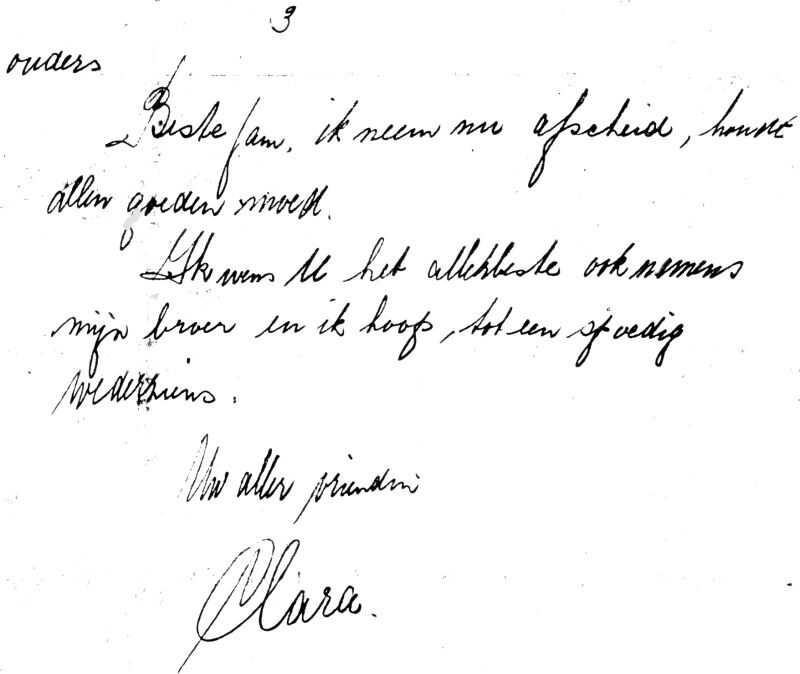 3
ouders
Beste fam, ik neem nu afscheid, houdt
allen goeden moed.
Ik wens U het allerbeste ook namens
mijn broer en ik hoop, tot een spoedig
wederziens.
Uw aller vriendin
Clara.